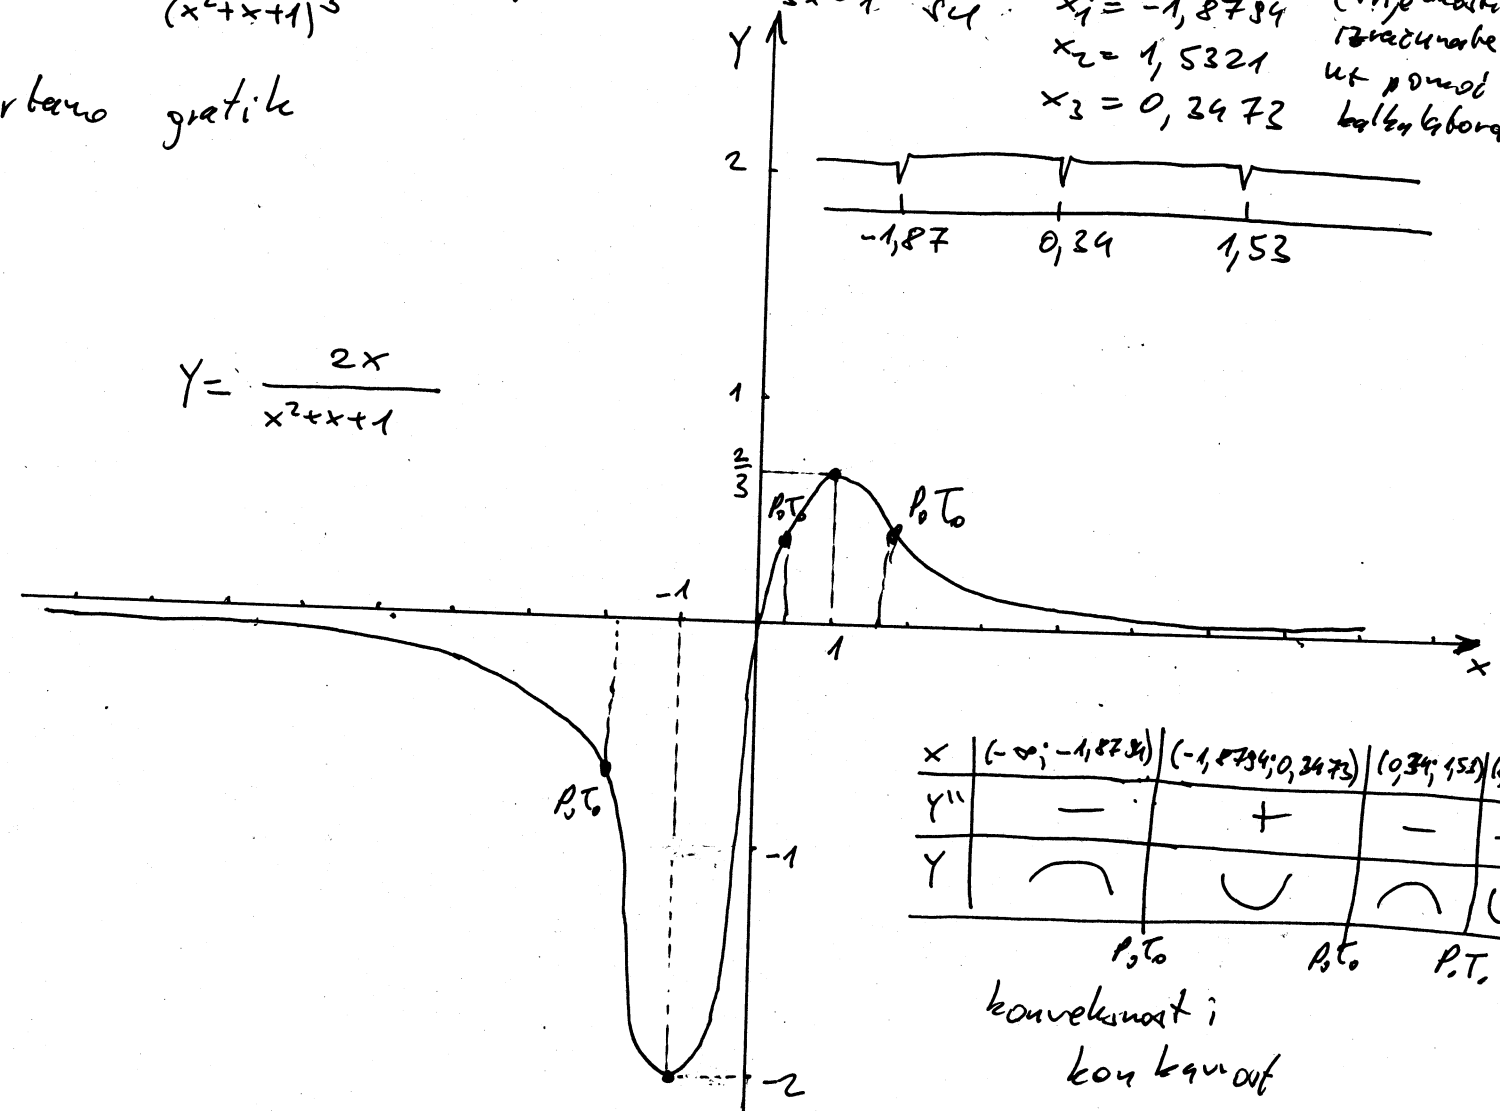 (x²+x+1)³
x₁ = -1,8794
x₂ = 1,5321
izračunate
uz pomoć
x₃ = 0,3473
kalkulatora
grafik
Y
2
-1,87 0,34 1,53
Y = 2x / x²+x+1
1
2/3
P.T. P.T.
-1
1
x
P.T.
-1
-2
x (-∞; -1,8794) (-1,8794; 0,3473) (0,34; 1,53)
Y'' − + −
Y
P.T. P.T. P.T.
konveksnost i
konkavnost